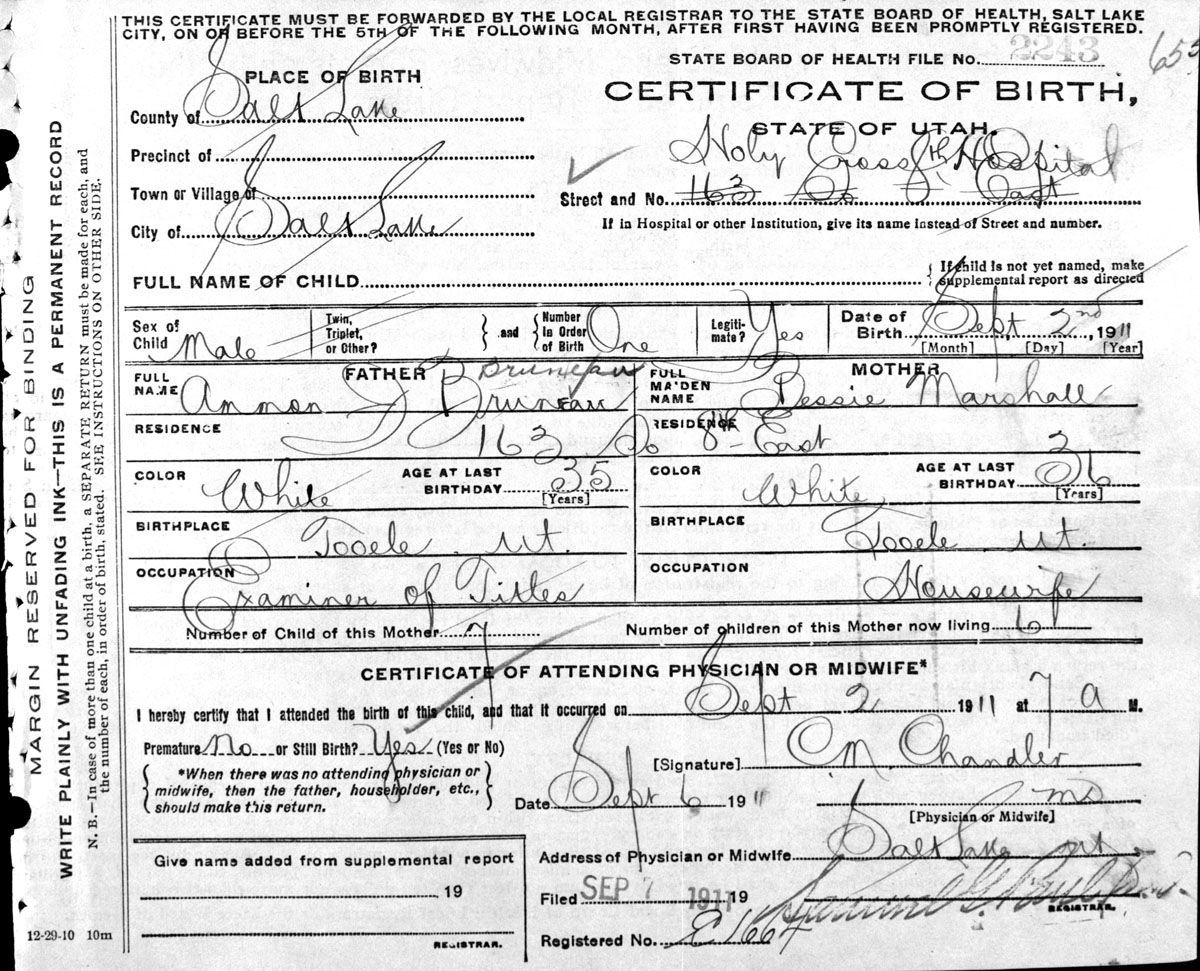 THIS CERTIFICATE MUST BE FORWARDED BY THE LOCAL REGISTRAR TO THE STATE BOARD OF HEALTH, SALT LAKE
CITY, ON OR BEFORE THE 5TH OF THE FOLLOWING MONTH, AFTER FIRST HAVING BEEN PROMPTLY REGISTERED.
STATE BOARD OF HEALTH FILE No. 2243
653
PLACE OF BIRTH
CERTIFICATE OF BIRTH,
STATE OF UTAH.
County of Salt Lake
Precinct of
Holy Cross Hospital
Town or Village of
Street and No. 163 So 8th East
City of Salt Lake
If in Hospital or other Institution, give its name instead of Street and number.
FULL NAME OF CHILD
{ If child is not yet named, make supplemental report as directed
Sex of Child Male
Twin, Triplet, or Other? } and { Number in Order of Birth One
Legitimate? Yes
Date of Birth Sept 2nd, 1911
[Month] [Day] [Year]
FATHER Bruneau
MOTHER
FULL NAME Ammon J Bruneau
FULL MAIDEN NAME Bessie Marshall
RESIDENCE 163 So
RESIDENCE 8th East
COLOR White
AGE AT LAST BIRTHDAY 35 [Years]
COLOR White
AGE AT LAST BIRTHDAY 36 [Years]
BIRTHPLACE Tooele Ut.
BIRTHPLACE Tooele Ut.
OCCUPATION Examiner of Titles
OCCUPATION Housewife
Number of Child of this Mother 7
Number of children of this Mother now living 6
CERTIFICATE OF ATTENDING PHYSICIAN OR MIDWIFE*
I hereby certify that I attended the birth of this child, and that it occurred on Sept 2 1911 at 7 a M.
Premature No or Still Birth? Yes (Yes or No)
[Signature] C M. Chandler
{ *When there was no attending physician or midwife, then the father, householder, etc., should make this return. }
Date Sept 6 1911
MD
[Physician or Midwife]
Give name added from supplemental report
Address of Physician or Midwife Salt Lake Ut
19
Filed SEP 7 1911 19
REGISTRAR.
Registered No. E 1664
REGISTRAR.
12-29-10 10m
MARGIN RESERVED FOR BINDING
WRITE PLAINLY WITH UNFADING INK—THIS IS A PERMANENT RECORD
N. B.—In case of more than one child at a birth, a SEPARATE RETURN must be made for each, and
the number of each, in order of birth, stated. SEE INSTRUCTIONS ON OTHER SIDE.